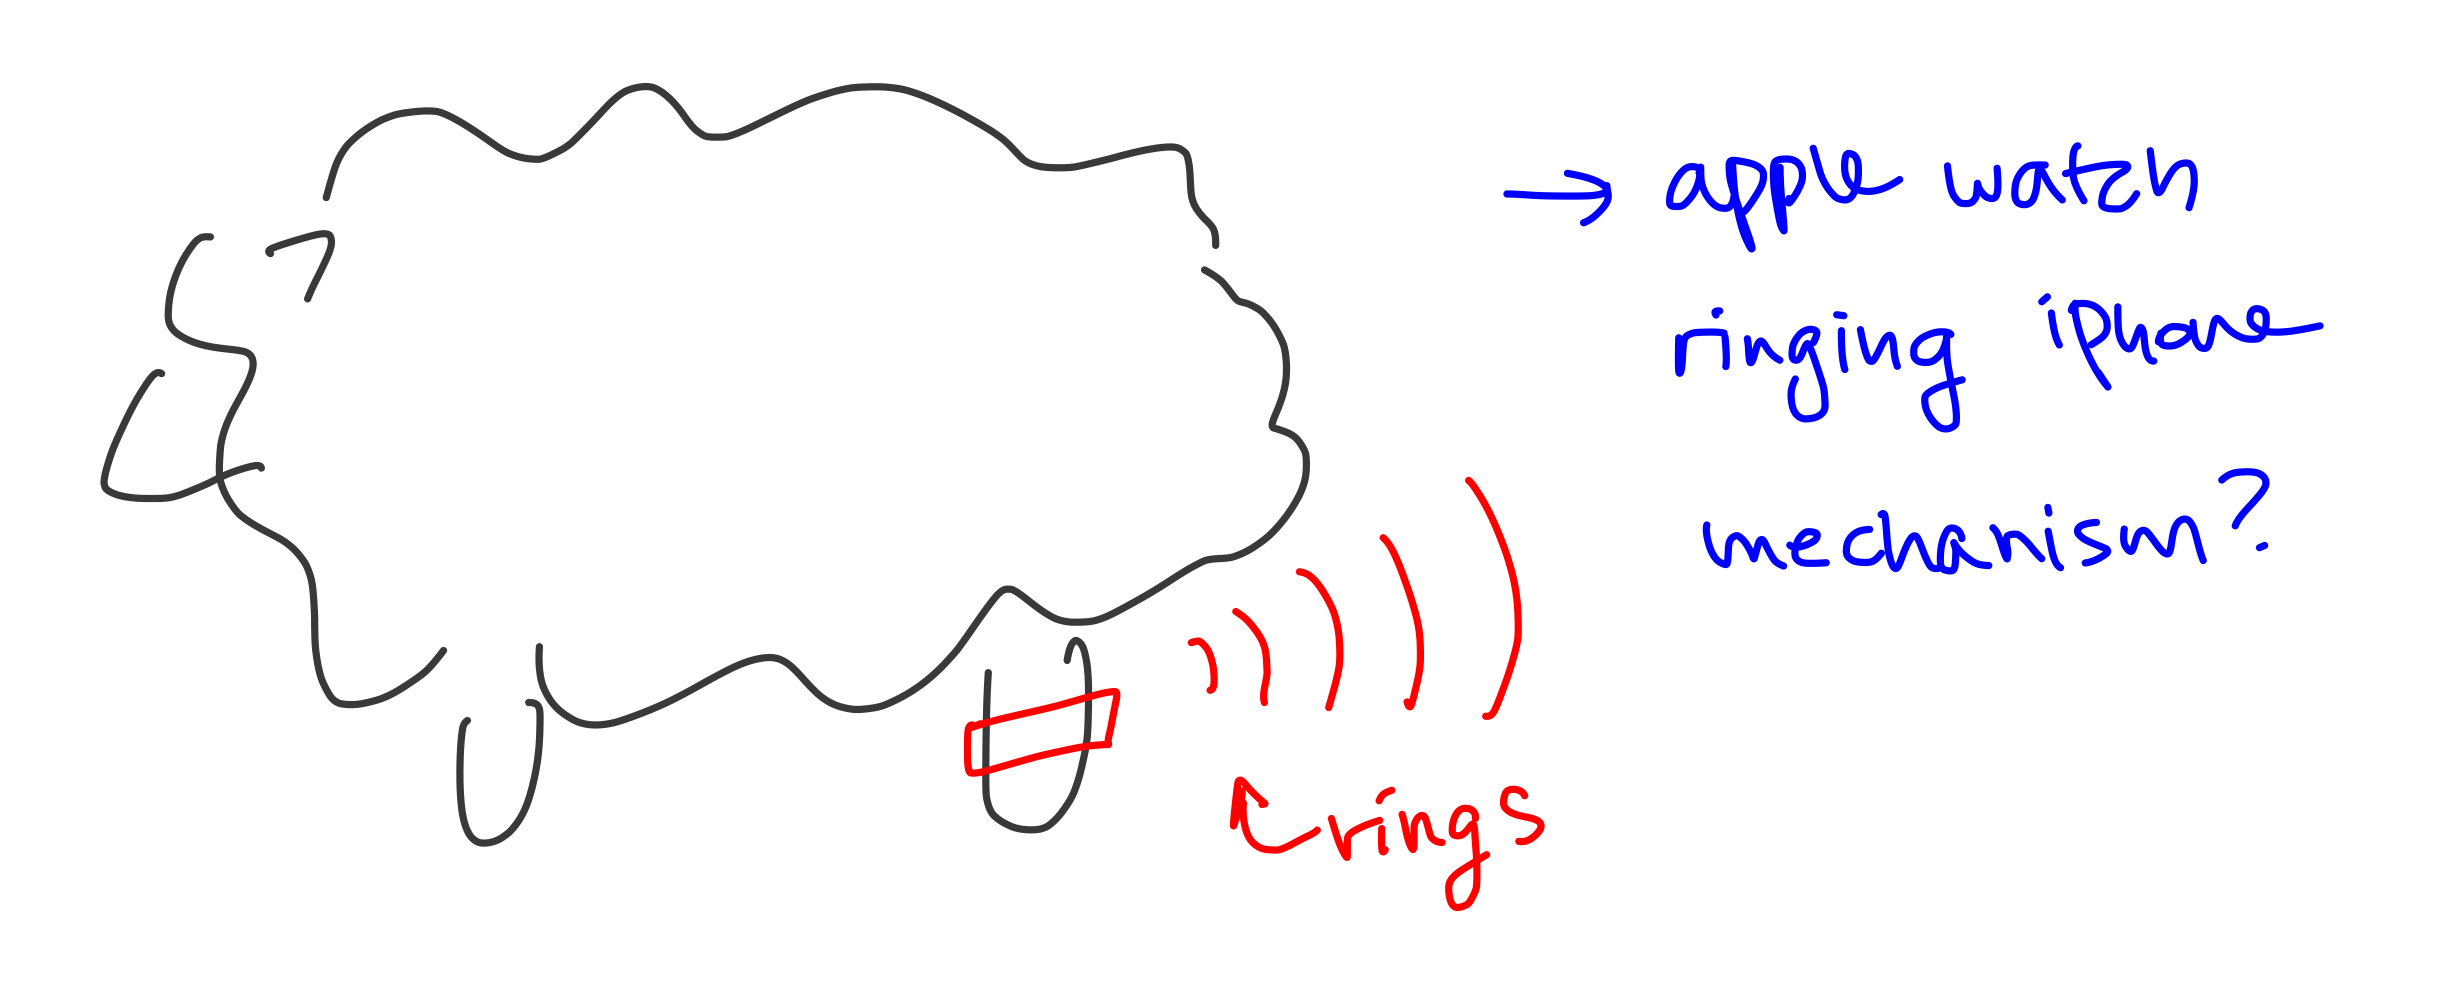 → apple watch
ringing iphone
mechanism?
rings